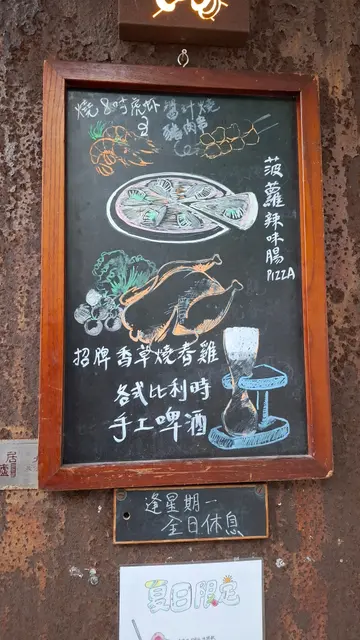 燒8吋虎蝦
醬汁燒
豬肉串
菠蘿辣味腸
PIZZA
招牌香草燒春雞
各式比利時
手工啤酒
逢星期一
全日休息
夏日限定
居